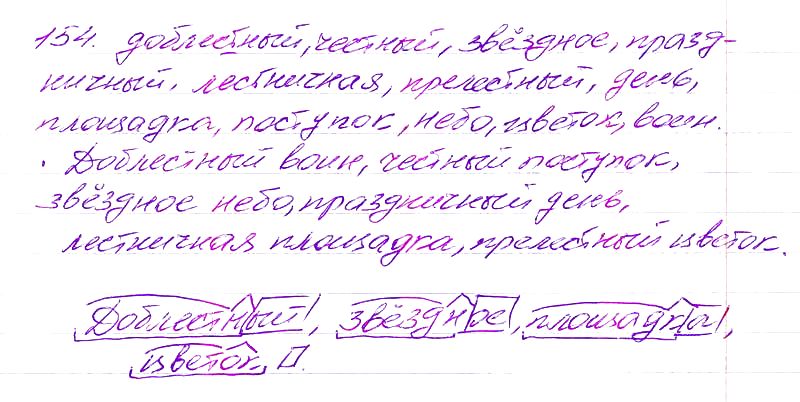 154. доблестный, честный, звёздное, празд-
ничный, лестничная, прелестный, день,
площадка, поступок, небо, цветок, воин.
Доблестный воин, честный поступок,
звёздное небо, праздничный день,
лестничная площадка, прелестный цветок.
Доблестный, звёздное, площадка,
цветок.